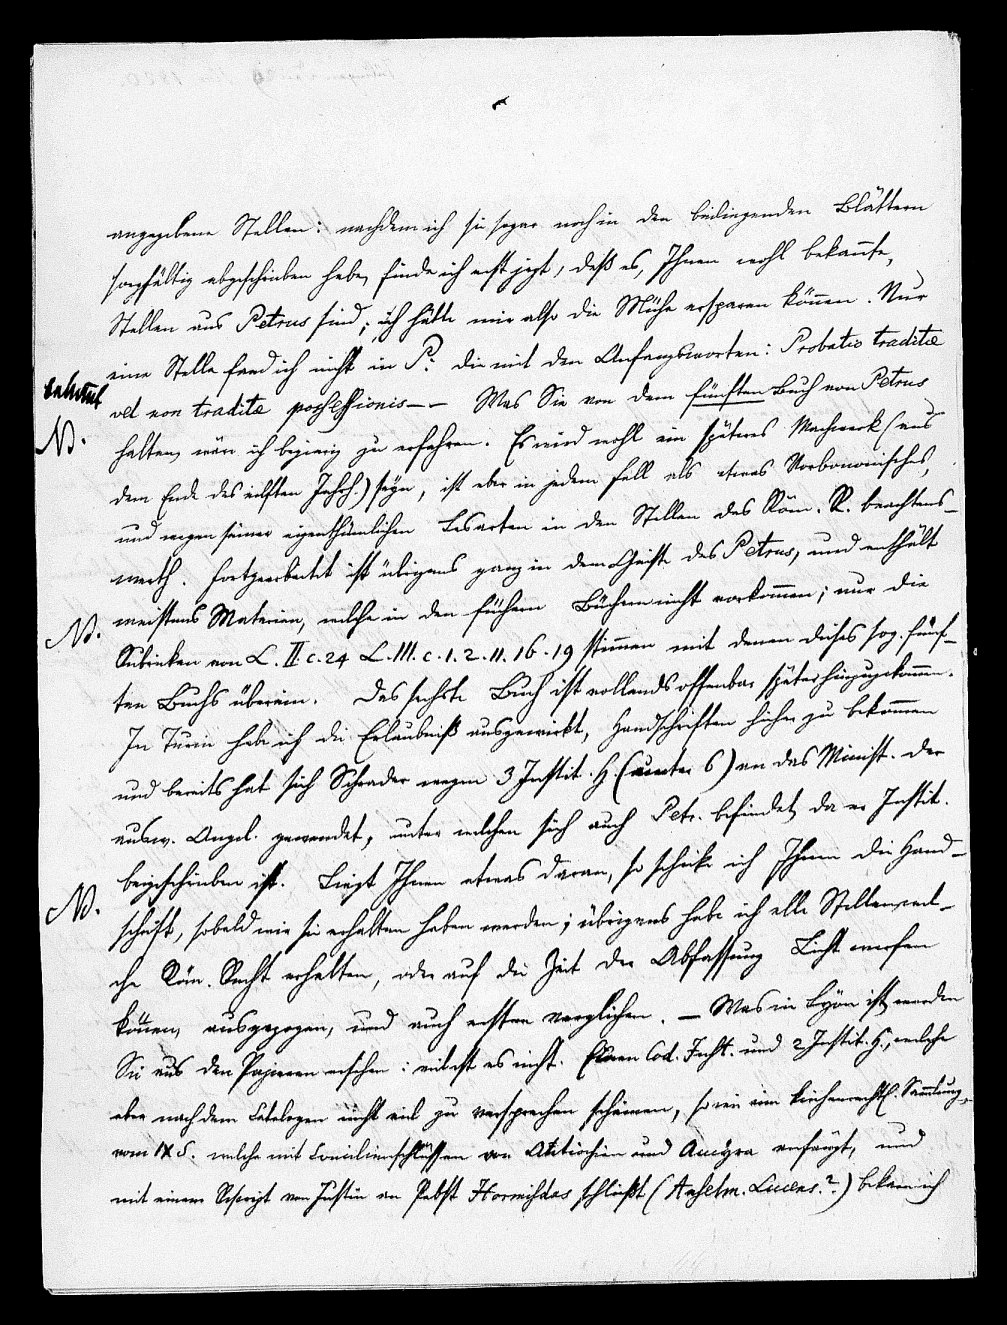 angegebene Stellen: nachdem ich sie sogar noch in den beiliegenden Blättern
sorgfältig abgeschrieben habe, finde ich erst jezt, daß es, Ihnen wohl bekannte,
Stellen aus Petrus sind; ich hätte mir also die Mühe ersparen können. Nur
eine Stelle fand ich nicht in P. die mit den Anfangsworten: Probatio traditæ
vel non traditæ possessionis — — Was Sie von dem fünften Buch von Petrus
N.
halten, wäre ich begierig zu erfahren. Es wird wohl ein späteres Machwerk (aus
dem Ende des eilften Jahrh.) seyn, ist aber in jedem Fall als etwas Vorbononisches,
und wegen seiner eigenthümlichen Lesarten in den Stellen des Röm. R. beachtens-
werth. Fortgearbeitet ist übrigens ganz in dem Geiste des Petrus, und enthält
meistens Materien, welche in den frühern Büchern nicht vorkommen; nur die
N.
Rubriken von L. II. c. 24 L. III. c. 1. 2. 11. 16. 19 stimmen mit denen dieses sog. fünf-
ten Buchs überein. Das sechste Buch ist vollends offenbar später hinzugekommen.
In Turin habe ich die Erlaubniß ausgewirkt, Handschriften hieher zu bekommen
und bereits hat sich Schrader wegen 3 Instit. H. (unter 6) an das Minist. der
ausw. Angel. gewendet, unter welchen sich auch Petr. befindet, da er Instit.
beigeschrieben ist. Liegt Ihnen etwas daran, so schicke ich Ihnen die Hand-
N.
schrift, sobald wir sie erhalten haben werden; übrigens habe ich alle Stellen, wel-
che Röm. Recht enthalten, oder auf die Zeit der Abfassung Licht werfen
können, ausgezogen, und auch erstere verglichen. — Was in Lyon ist, werden
Sie aus den Papieren ersehen: viel ist es nicht. Einen Cod. Just. und 2 Instit. H., welche
aber nach dem Catalogen nicht viel zu versprechen scheinen, so wie eine kirchenrechtl. Sammlung,
vom IX S. welche mit Concilienschlüssen von Antiochien und Ancyra anfängt, und
mit einem Rescript von Justin an Pabst Hormisdas schließt (Anselm. Lucens.?) bekam ich